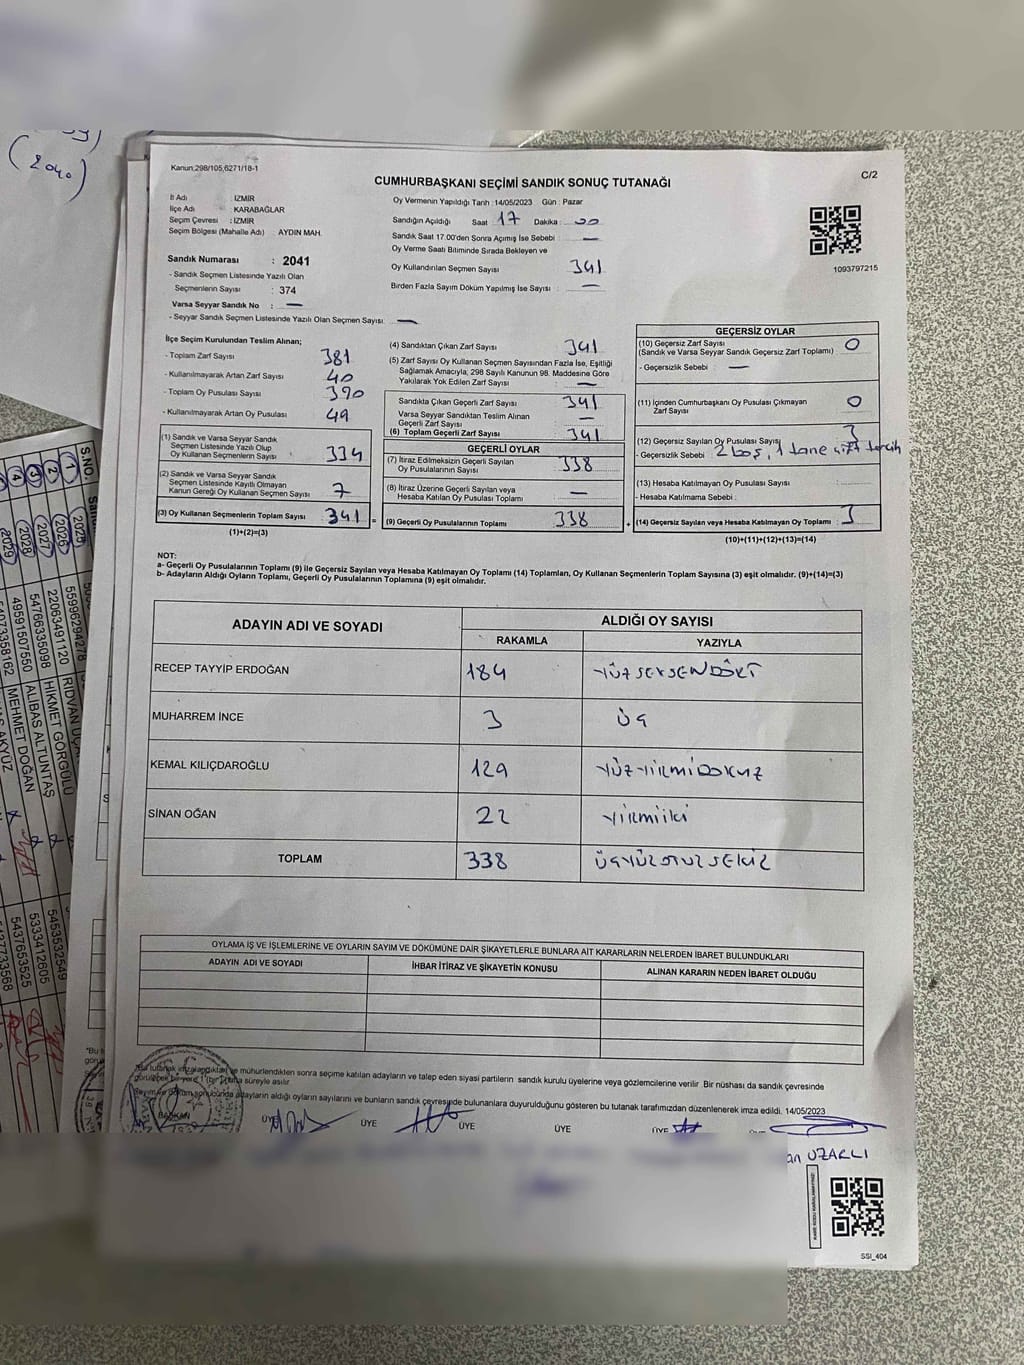 (2040)
Kanun:298/105,6271/18-1
C/2
CUMHURBAŞKANI SEÇİMİ SANDIK SONUÇ TUTANAĞI
İl Adı : İZMİR
İlçe Adı : KARABAĞLAR
Seçim Çevresi : İZMİR
Seçim Bölgesi (Mahalle Adı) : AYDIN MAH.
Sandık Numarası : 2041
- Sandık Seçmen Listesinde Yazılı Olan
Seçmenlerin Sayısı : 374
Varsa Seyyar Sandık No : —
- Seyyar Sandık Seçmen Listesinde Yazılı Olan Seçmen Sayısı: —
Oy Vermenin Yapıldığı Tarih :14/05/2023 Gün : Pazar
Sandığın Açıldığı Saat 17 Dakika : 00
Sandık Saat 17.00'den Sonra Açımış İse Sebebi : —
Oy Verme Saati Bitiminde Sırada Bekleyen ve
Oy Kullandırılan Seçmen Sayısı 341
Birden Fazla Sayım Döküm Yapılmış İse Sayısı : —
1093797215
İlçe Seçim Kurulundan Teslim Alınan;
- Toplam Zarf Sayısı 381
- Kullanılmayarak Artan Zarf Sayısı 40
- Toplam Oy Pusulası Sayısı 390
- Kullanılmayarak Artan Oy Pusulası 49
(1) Sandık ve Varsa Seyyar Sandık
Seçmen Listesinde Yazılı Olup
Oy Kullanan Seçmenlerin Sayısı 334
(2) Sandık ve Varsa Seyyar Sandık
Seçmen Listesinde Kayıtlı Olmayan
Kanun Gereği Oy Kullanan Seçmen Sayısı 7
(3) Oy Kullanan Seçmenlerin Toplam Sayısı 341 =
(1)+(2)=(3)
(4) Sandıktan Çıkan Zarf Sayısı 341
(5) Zarf Sayısı Oy Kullanan Seçmen Sayısından Fazla İse, Eşitliği
Sağlamak Amacıyla, 298 Sayılı Kanunun 98. Maddesine Göre
Yakılarak Yok Edilen Zarf Sayısı —
Sandıkta Çıkan Geçerli Zarf Sayısı 341
Varsa Seyyar Sandıktan Teslim Alınan
Geçerli Zarf Sayısı —
(6) Toplam Geçerli Zarf Sayısı 341
GEÇERLİ OYLAR
(7) İtiraz Edilmeksizin Geçerli Sayılan
Oy Pusulalarının Sayısı 338
(8) İtiraz Üzerine Geçerli Sayılan veya
Hesaba Katılan Oy Pusulası Toplamı —
(9) Geçerli Oy Pusulalarının Toplamı 338 +
GEÇERSİZ OYLAR
(10) Geçersiz Zarf Sayısı
(Sandık ve Varsa Seyyar Sandık Geçersiz Zarf Toplamı) 0
- Geçersizlik Sebebi : —
(11) İçinden Cumhurbaşkanı Oy Pusulası Çıkmayan
Zarf Sayısı 0
(12) Geçersiz Sayılan Oy Pusulası Sayısı 3
- Geçersizlik Sebebi : 2 boş, 1 tane çift tercih
(13) Hesaba Katılmayan Oy Pusulası Sayısı
- Hesaba Katılmama Sebebi :
(14) Geçersiz Sayılan veya Hesaba Katılmayan Oy Toplamı : 3
(10)+(11)+(12)+(13)=(14)
NOT:
a- Geçerli Oy Pusulalarının Toplamı (9) ile Geçersiz Sayılan veya Hesaba Katılmayan Oy Toplamı (14) Toplamları, Oy Kullanan Seçmenlerin Toplam Sayısına (3) eşit olmalıdır. (9)+(14)=(3)
b- Adayların Aldığı Oyların Toplamı, Geçerli Oy Pusulalarının Toplamına (9) eşit olmalıdır.
ADAYIN ADI VE SOYADI
ALDIĞI OY SAYISI
RAKAMLA YAZIYLA
RECEP TAYYİP ERDOĞAN 184 YÜZSEKSENDÖRT
MUHARREM İNCE 3 ÜÇ
KEMAL KILIÇDAROĞLU 129 YÜZYİRMİDOKUZ
SİNAN OĞAN 22 Yirmiiki
TOPLAM 338 ÜÇYÜZOTUZSEKİZ
OYLAMA İŞ VE İŞLEMLERİNE VE OYLARIN SAYIM VE DÖKÜMÜNE DAİR ŞİKAYETLERLE BUNLARA AİT KARARLARIN NELERDEN İBARET BULUNDUKLARI
ADAYIN ADI VE SOYADI İHBAR İTİRAZ VE ŞİKAYETİN KONUSU ALINAN KARARIN NEDEN İBARET OLDUĞU
mühürlendikten sonra seçime katılan adayların ve talep eden siyasi partilerin sandık kurulu üyelerine veya gözlemcilerine verilir. Bir nüshası da sandık çevresinde
süreyle asılır.
adayların aldığı oyların sayılarını ve bunların sandık çevresinde bulunanlara duyurulduğunu gösteren bu tutanak tarafımızdan düzenlenerek imza edildi. 14/05/2023
BAŞKAN ÜYE ÜYE ÜYE ÜYE ÜYE
UZARLI
SSI_404
S.NO.
1 2025
2 2026 22063491120 HİKMET GÖRGÜLÜ 5453532549
3 2027 54766335098 ALİBAS ALTUNTAŞ 5333412605
4 2028 49591507550 MEHMET DOĞAN 5437653525
2029